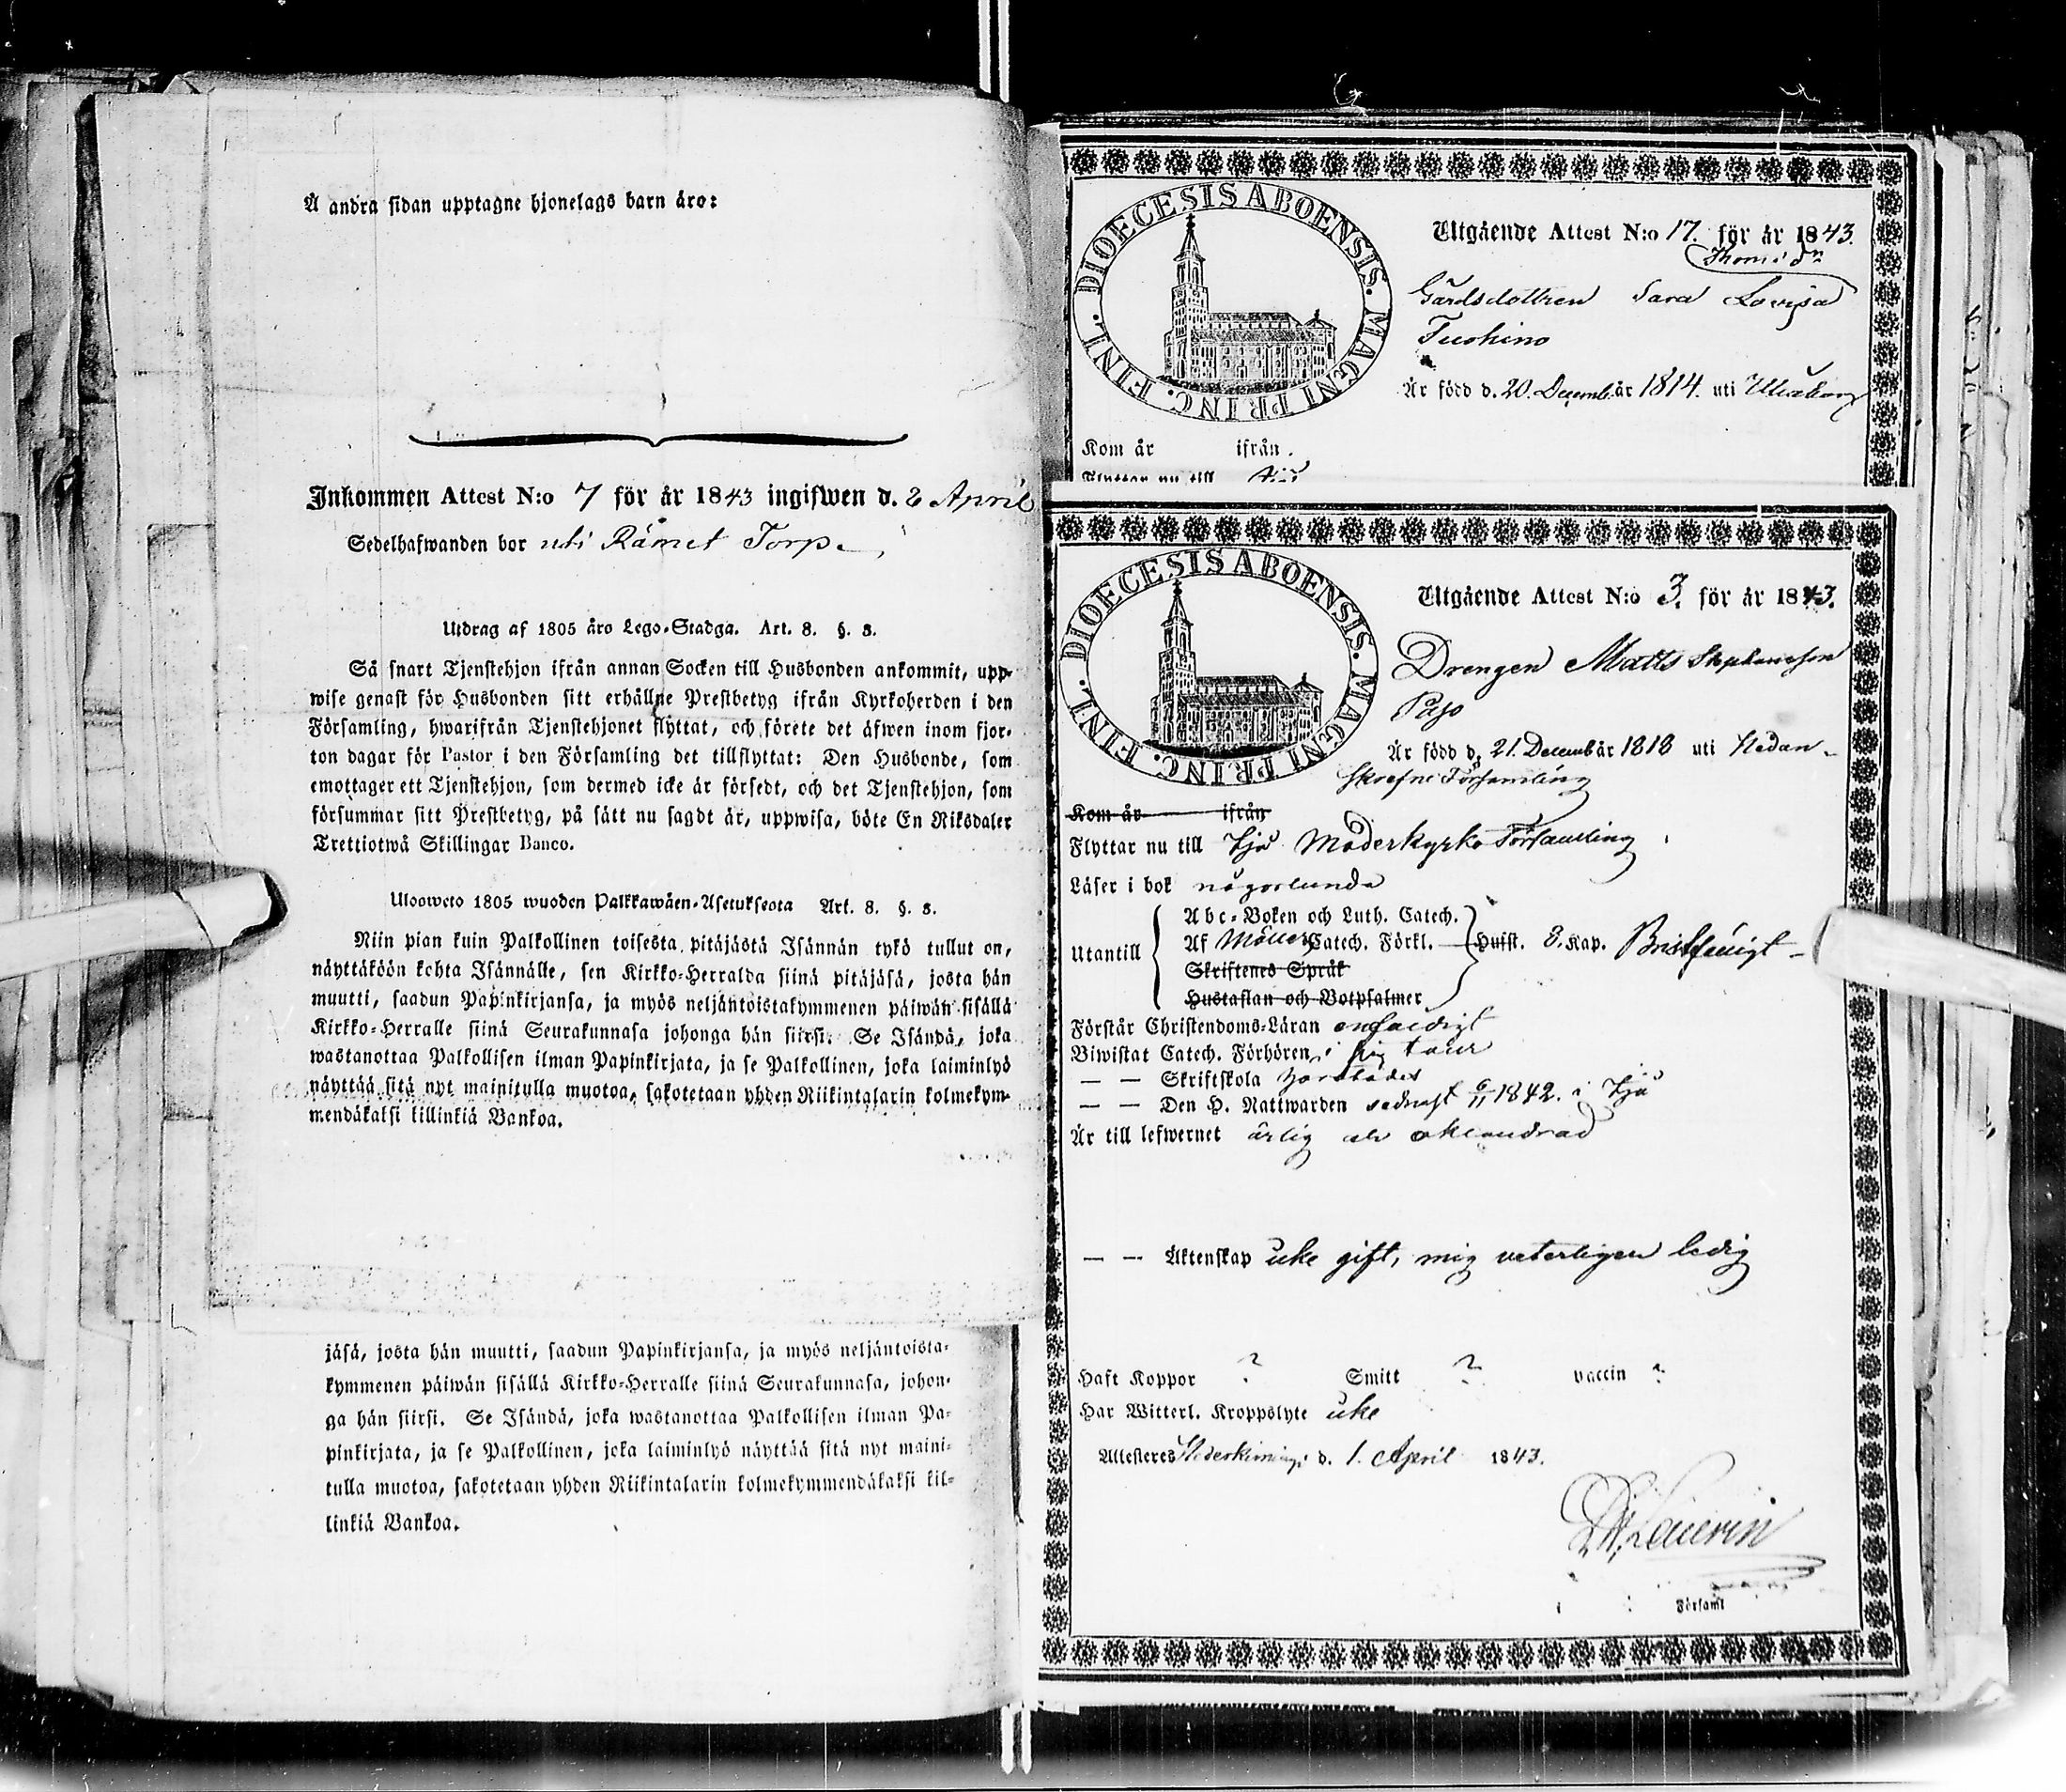 Å andra sidan upptagne hjonelags barn äro:
Inkommen Attest N:o 7 för år 1843 ingifwen d. 2 April
Sedelhafwanden bor uti Rämet Torp
Utdrag af 1805 års Lego-Stadga. Art. 8. §. 3.
Så snart Tjenstehjon ifrån annan Socken till Husbonden ankommit, upp-
wise genast för Husbonden sitt erhållne Prestbetyg ifrån Kyrkoherden i den
Församling, hwarifrån Tjenstehjonet flyttat, och förete det äfwen inom fjor-
ton dagar för Pastor i den Församling det tillflyttat: Den Husbonde, som
emottager ett Tjenstehjon, som dermed icke är försedt, och det Tjenstehjon, som
försummar sitt Prestbetyg, på sätt nu sagdt är, uppwisa, böte En Riksdaler
Trettiotwå Skillingar Banco.
Ulosweto 1805 wuoden Palkkawäen-Asetuksesta Art. 8. §. 3.
Niin pian kuin Palkollinen toisesta pitäjästä Isännän tykö tullut on,
näyttäköön kohta Isännälle, sen Kirkko-Herralda siinä pitäjäsä, josta hän
muutti, saadun Papinkirjansa, ja myös neljäntoistakymmenen päiwän sisällä
Kirkko-Herralle siinä Seurakunnasa johonga hän siirsi. Se Isändä, joka
wastanottaa Palkollisen ilman Papinkirjata, ja se Palkollinen, joka laiminlyö
näyttää sitä nyt mainitulla muotoa, sakotetaan yhden Riikintalarin kolmekym-
mendäkaksi killinkiä Bankoa.
jäsä, josta hän muutti, saadun Papinkirjansa, ja myös neljäntoista-
kymmenen päiwän sisällä Kirkko-Herralle siinä Seurakunnasa, johon-
ga hän siirsi. Se Isändä, joka wastanottaa Palkollisen ilman Pa-
pinkirjata, ja se Palkollinen, joka laiminlyö näyttää sitä nyt maini-
tulla muotoa, sakotetaan yhden Riikintalarin kolmekymmendäkaksi kil-
linkiä Bankoa.
DIOECESIS ABOENSIS. MAGNI PRINC. FINL.
Utgående Attest N:o 17. för år 1843.
Thomsdr
Gårdsdottren Sara Lovisa
Tuohino
Är född d. 20. Decemb. år 1814. uti Ulvaborg
Kom år ifrån.
Flyttar nu till
DIOECESIS ABOENSIS. MAGNI PRINC. FINL.
Utgående Attest N:o 3. för år 1843.
Drengen Matts Stephansson
Pajo
Är född d. 21. Decemb år 1818 uti Nedan-
skrefne Församling
Kom år ifrån
Flyttar nu till Kjulo Moderkyrko Församling
Läser i bok någorlunda
Utantill Abc-Boken och Luth. Catech.
Af Möllers Catech. Förkl. Huist. 8. Kap. Bristfälligt
Skriftenes Språk
Hustaflan och Botpsalmer
Förstår Christendoms-Läran enfaldigt
Biwistat Catech. Förhören i sin tour
— — Skriftskola
— — Den H. Nattwarden sednast 6/11 1842. i Kjulo
Är till lefwernet ärlig och oklandrad
— — Äktenskap icke gift, mig veterligen ledig
Haft Koppor ? Smitt ? vaccin ?
Har Witterl. Kroppslyte icke
Attesteres d. 1. April 1843.
Församl